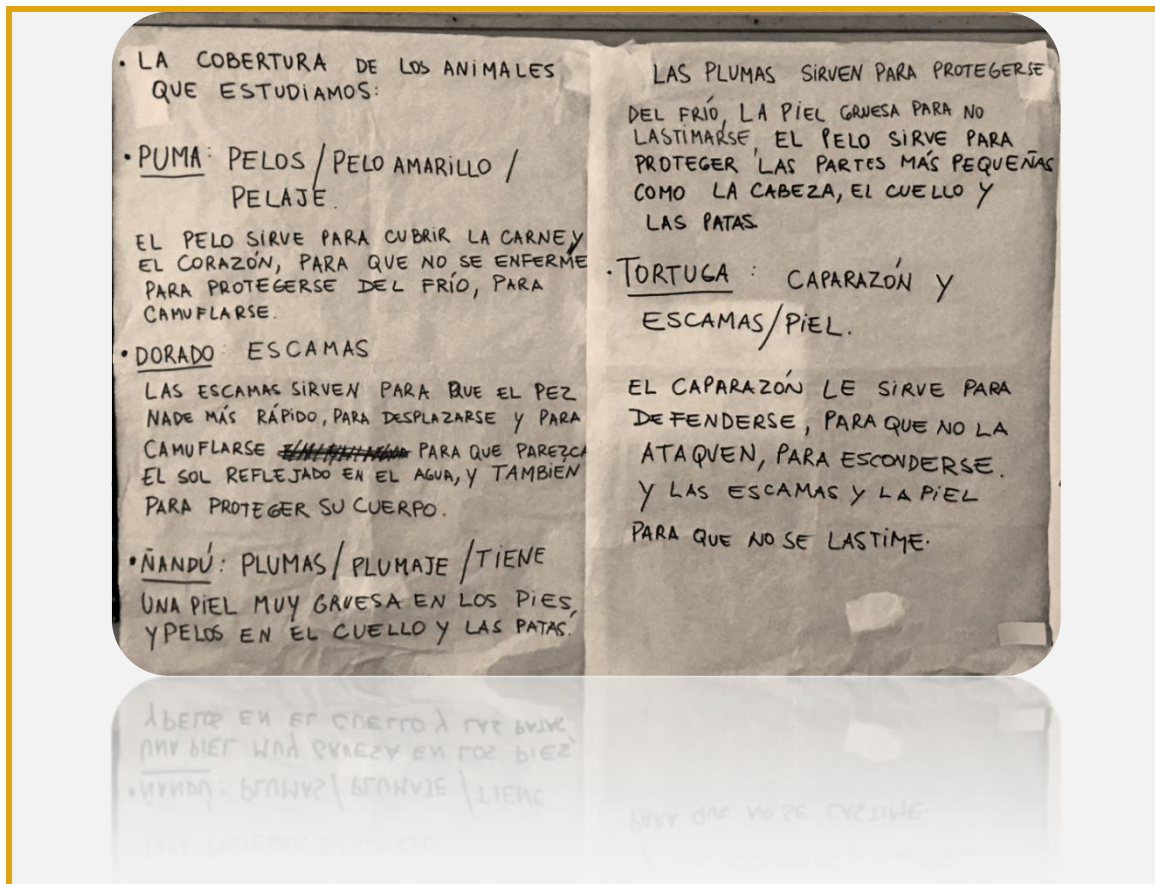 · LA COBERTURA DE LOS ANIMALES
QUE ESTUDIAMOS:
· PUMA: PELOS / PELO AMARILLO /
PELAJE.
EL PELO SIRVE PARA CUBRIR LA CARNE Y
EL CORAZÓN, PARA QUE NO SE ENFERME
PARA PROTEGERSE DEL FRÍO, PARA
CAMUFLARSE.
· DORADO: ESCAMAS
LAS ESCAMAS SIRVEN PARA QUE EL PEZ
NADE MÁS RÁPIDO, PARA DESPLAZARSE Y PARA
CAMUFLARSE PARA QUE PAREZCA
EL SOL REFLEJADO EN EL AGUA, Y TAMBIEN
PARA PROTEGER SU CUERPO.
· ÑANDÚ: PLUMAS / PLUMAJE / TIENE
UNA PIEL MUY GRUESA EN LOS PIES,
Y PELOS EN EL CUELLO Y LAS PATAS.
LAS PLUMAS SIRVEN PARA PROTEGERSE
DEL FRÍO, LA PIEL GRUESA PARA NO
LASTIMARSE, EL PELO SIRVE PARA
PROTEGER LAS PARTES MÁS PEQUEÑAS
COMO LA CABEZA, EL CUELLO Y
LAS PATAS
· TORTUGA: CAPARAZÓN Y
ESCAMAS/PIEL.
EL CAPARAZÓN LE SIRVE PARA
DEFENDERSE, PARA QUE NO LA
ATAQUEN, PARA ESCONDERSE.
Y LAS ESCAMAS Y LA PIEL
PARA QUE NO SE LASTIME.